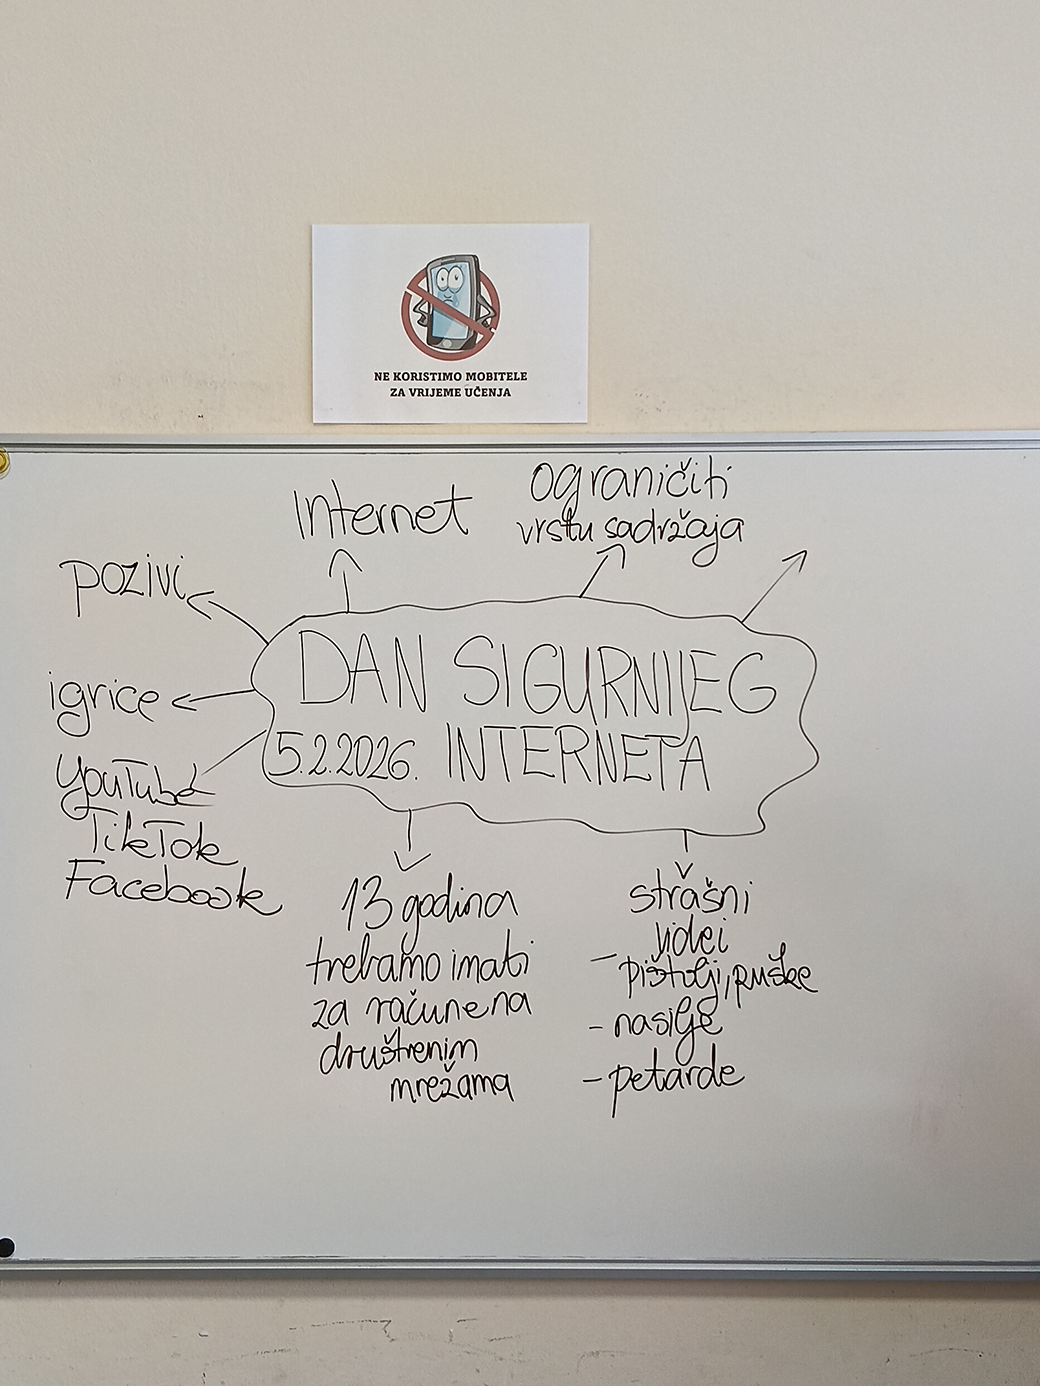 NE KORISTIMO MOBITELE
ZA VRIJEME UČENJA
Internet
ograničiti
vrstu sadržaja
pozivi
igrice
YouTube
TikTok
Facebook
DAN SIGURNIJEG
5.2.2026. INTERNETA
13 godina
trebamo imati
za račune na
društvenim
mrežama
strašni
videi
- pištolji, puške
- nasilje
- petarde